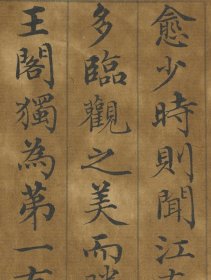 愈少時則聞江
多臨觀之美而
王閣獨為第一有